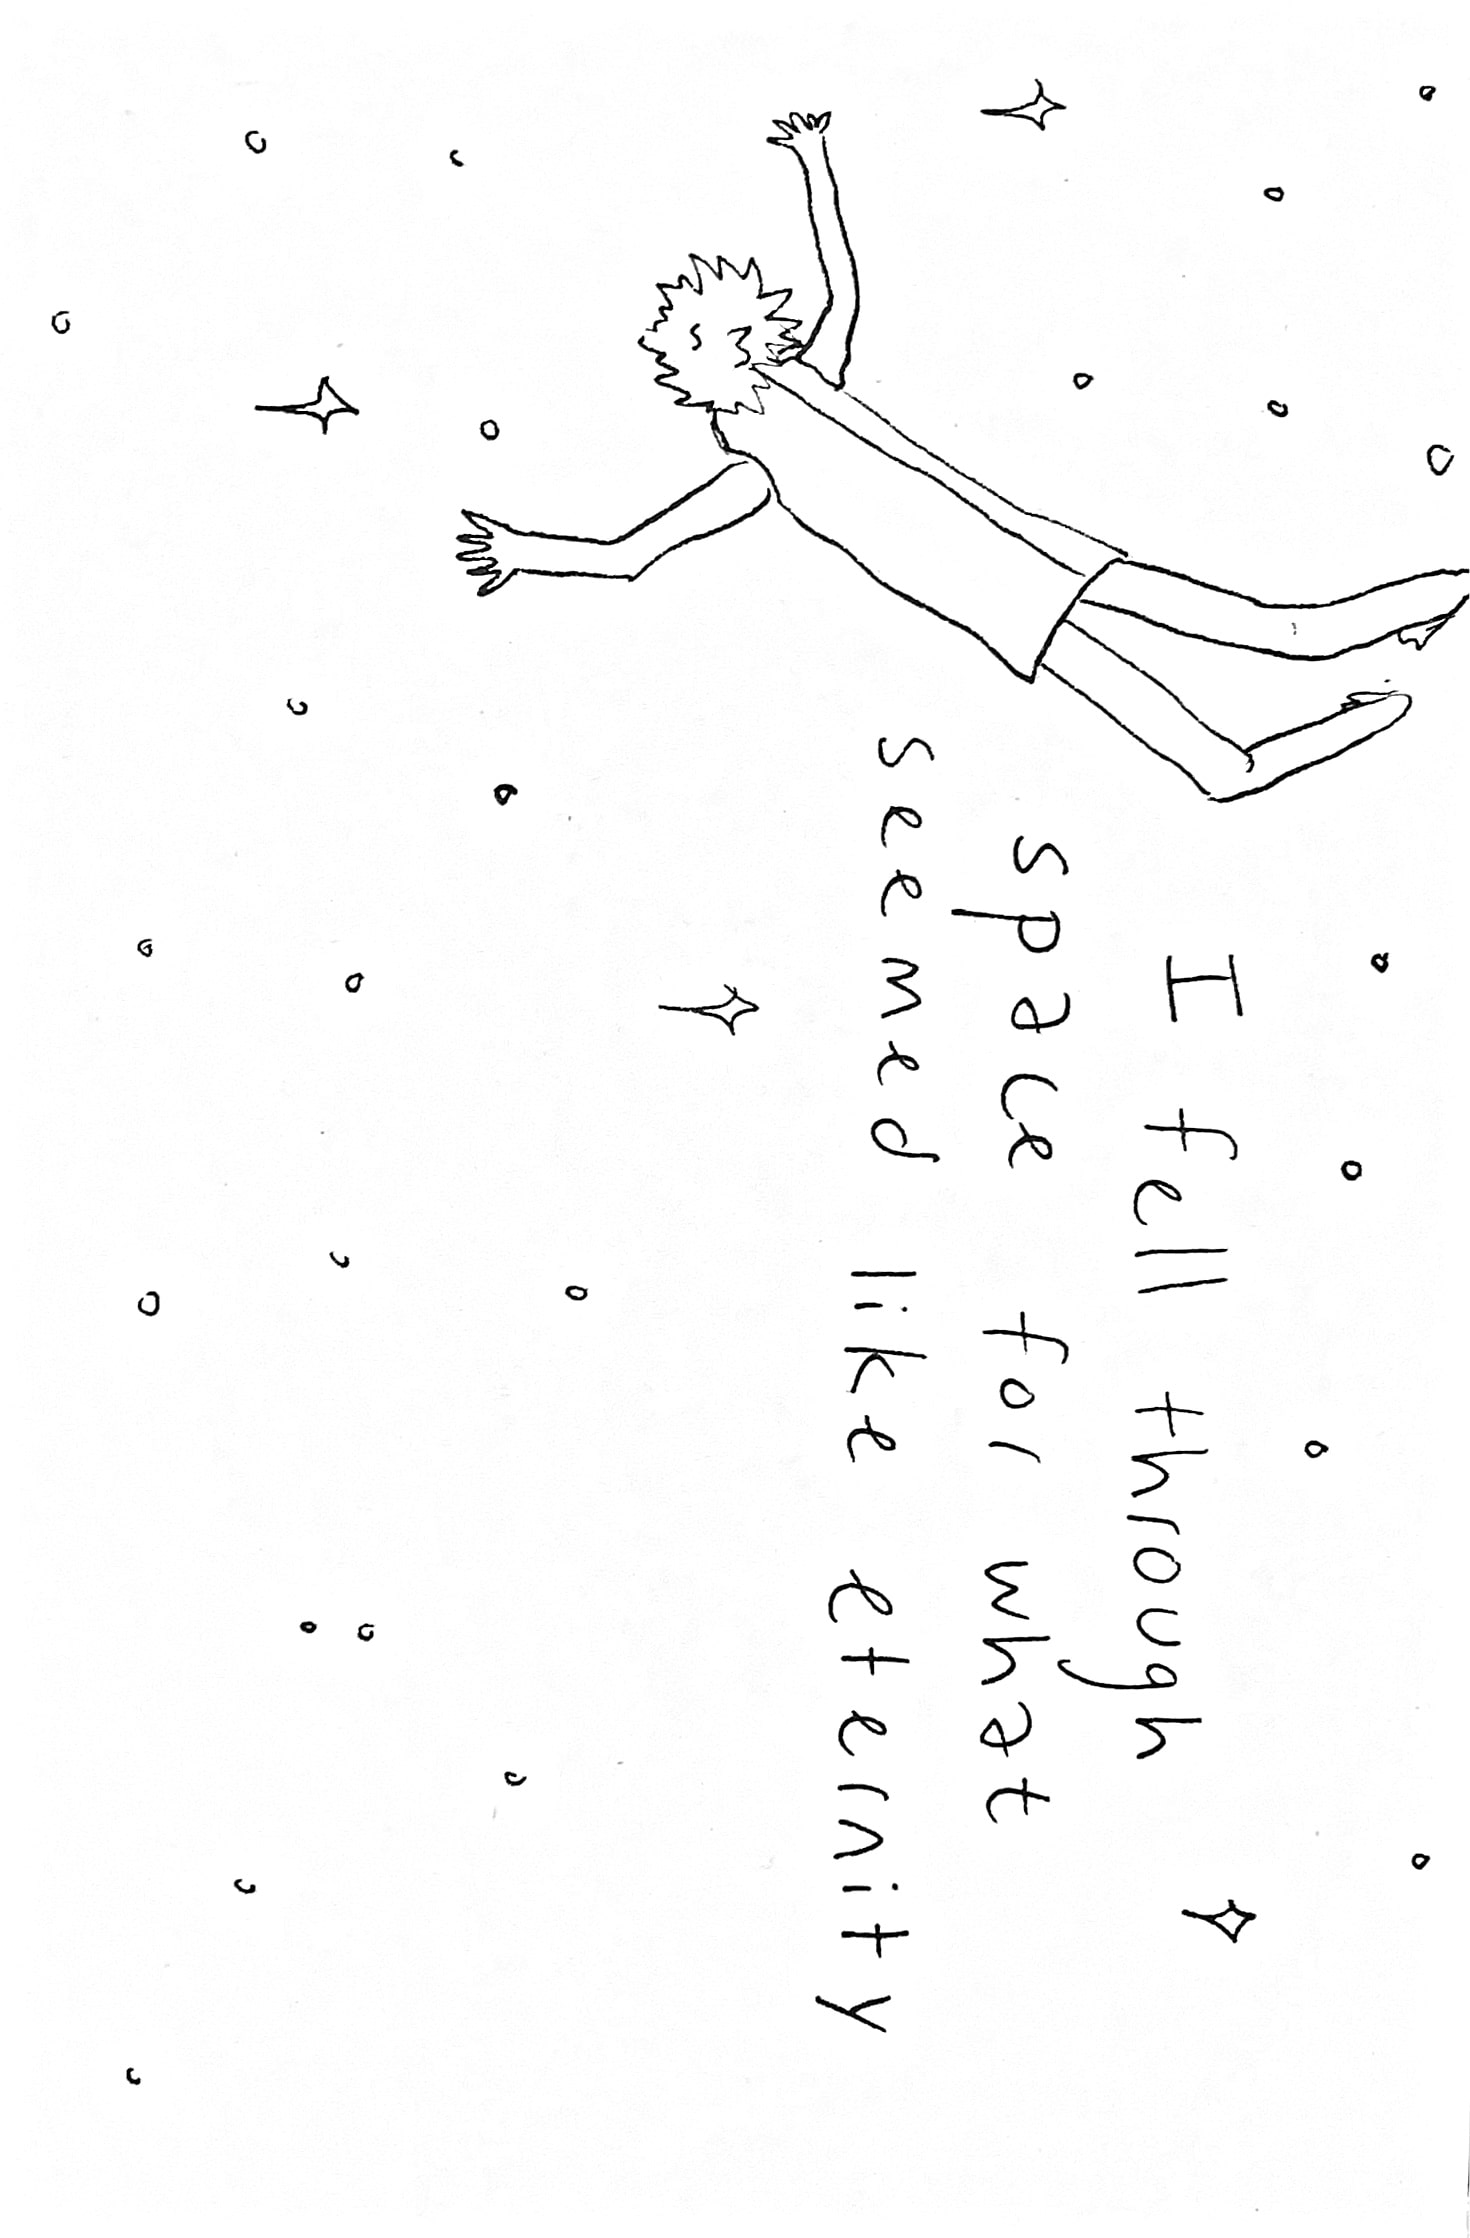 I fell through
space for what
seemed like eternity